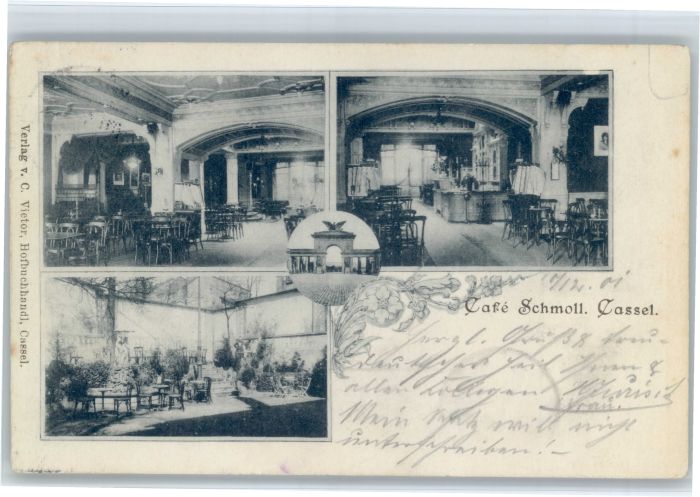 Verlag v. C. Victor, Hofbuchhandl, Cassel.
Café Schmoll. Cassel.
12. 01
Herzl. Grüße
Ihnen &
allen Collegen
Mein Schatz will nicht
unterschreiben! –